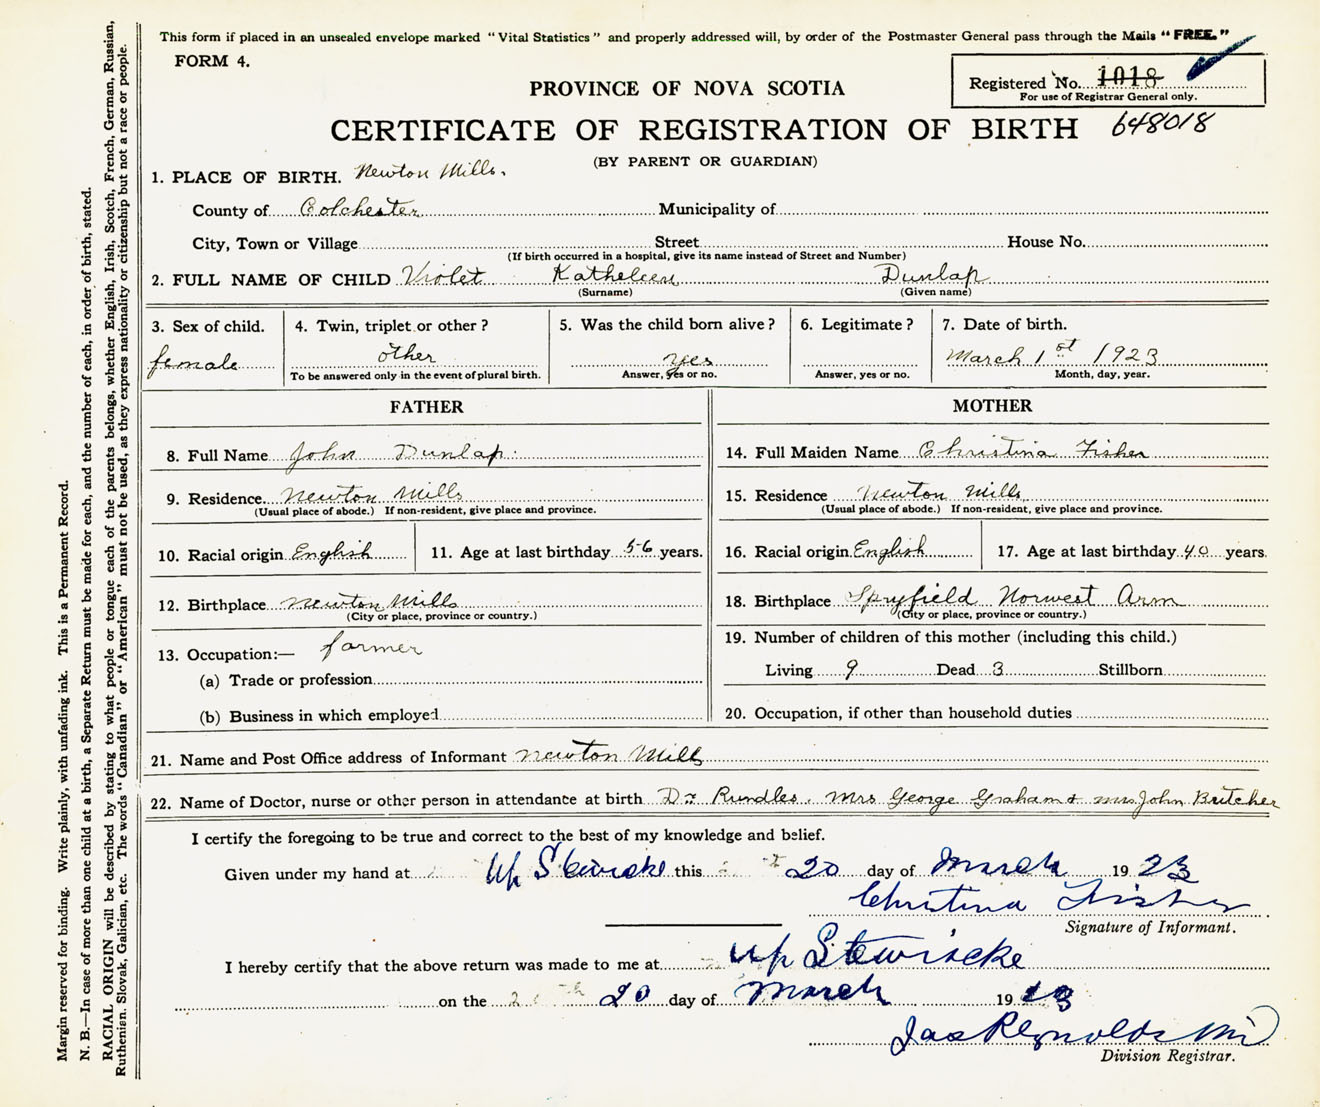 This form if placed in an unsealed envelope marked "Vital Statistics" and properly addressed will, by order of the Postmaster General pass through the Mails "FREE."
FORM 4.
Registered No. 1018
For use of Registrar General only.
PROVINCE OF NOVA SCOTIA
CERTIFICATE OF REGISTRATION OF BIRTH 648018
(BY PARENT OR GUARDIAN)
1. PLACE OF BIRTH. Newton Mills.
County of Colchester Municipality of
City, Town or Village Street House No.
(If birth occurred in a hospital, give its name instead of Street and Number)
2. FULL NAME OF CHILD Violet Katheleen Dunlap
(Surname) (Given name)
3. Sex of child. 4. Twin, triplet or other? 5. Was the child born alive? 6. Legitimate? 7. Date of birth.
female other yes March 1st 1923
To be answered only in the event of plural birth. Answer, yes or no. Answer, yes or no. Month, day, year.
FATHER MOTHER
8. Full Name John Dunlap 14. Full Maiden Name Christina Fisher
9. Residence. Newton Mills 15. Residence Newton Mills
(Usual place of abode.) If non-resident, give place and province. (Usual place of abode.) If non-resident, give place and province.
10. Racial origin English 11. Age at last birthday 56 years. 16. Racial origin English 17. Age at last birthday 40 years.
12. Birthplace Newton Mills 18. Birthplace Spryfield Norwest Arm
(City or place, province or country.) (City or place, province or country.)
13. Occupation:— farmer 19. Number of children of this mother (including this child.)
(a) Trade or profession Living 9 Dead 3 Stillborn
(b) Business in which employed 20. Occupation, if other than household duties
21. Name and Post Office address of Informant Newton Mills
22. Name of Doctor, nurse or other person in attendance at birth Dr Rundles. Mrs George Graham + Mrs John Butcher
I certify the foregoing to be true and correct to the best of my knowledge and belief.
Given under my hand at Up Stewiacke this 20 day of March 1923
Christina Fisher
Signature of Informant.
I hereby certify that the above return was made to me at Up Stewiacke
on the 20 day of March 1923
Jas Reynolds
Division Registrar.
Margin reserved for binding. Write plainly, with unfading ink. This is a Permanent Record.
N. B.—In case of more than one child at a birth, a Separate Return must be made for each, and the number of each, in order of birth, stated.
RACIAL ORIGIN will be described by stating to what people or tongue each of the parents belongs, whether English, Irish, Scotch, French, German, Russian,
Ruthenian, Slovak, Galician, etc. The words "Canadian" or "American" must not be used, as they express nationality or citizenship but not a race or people.